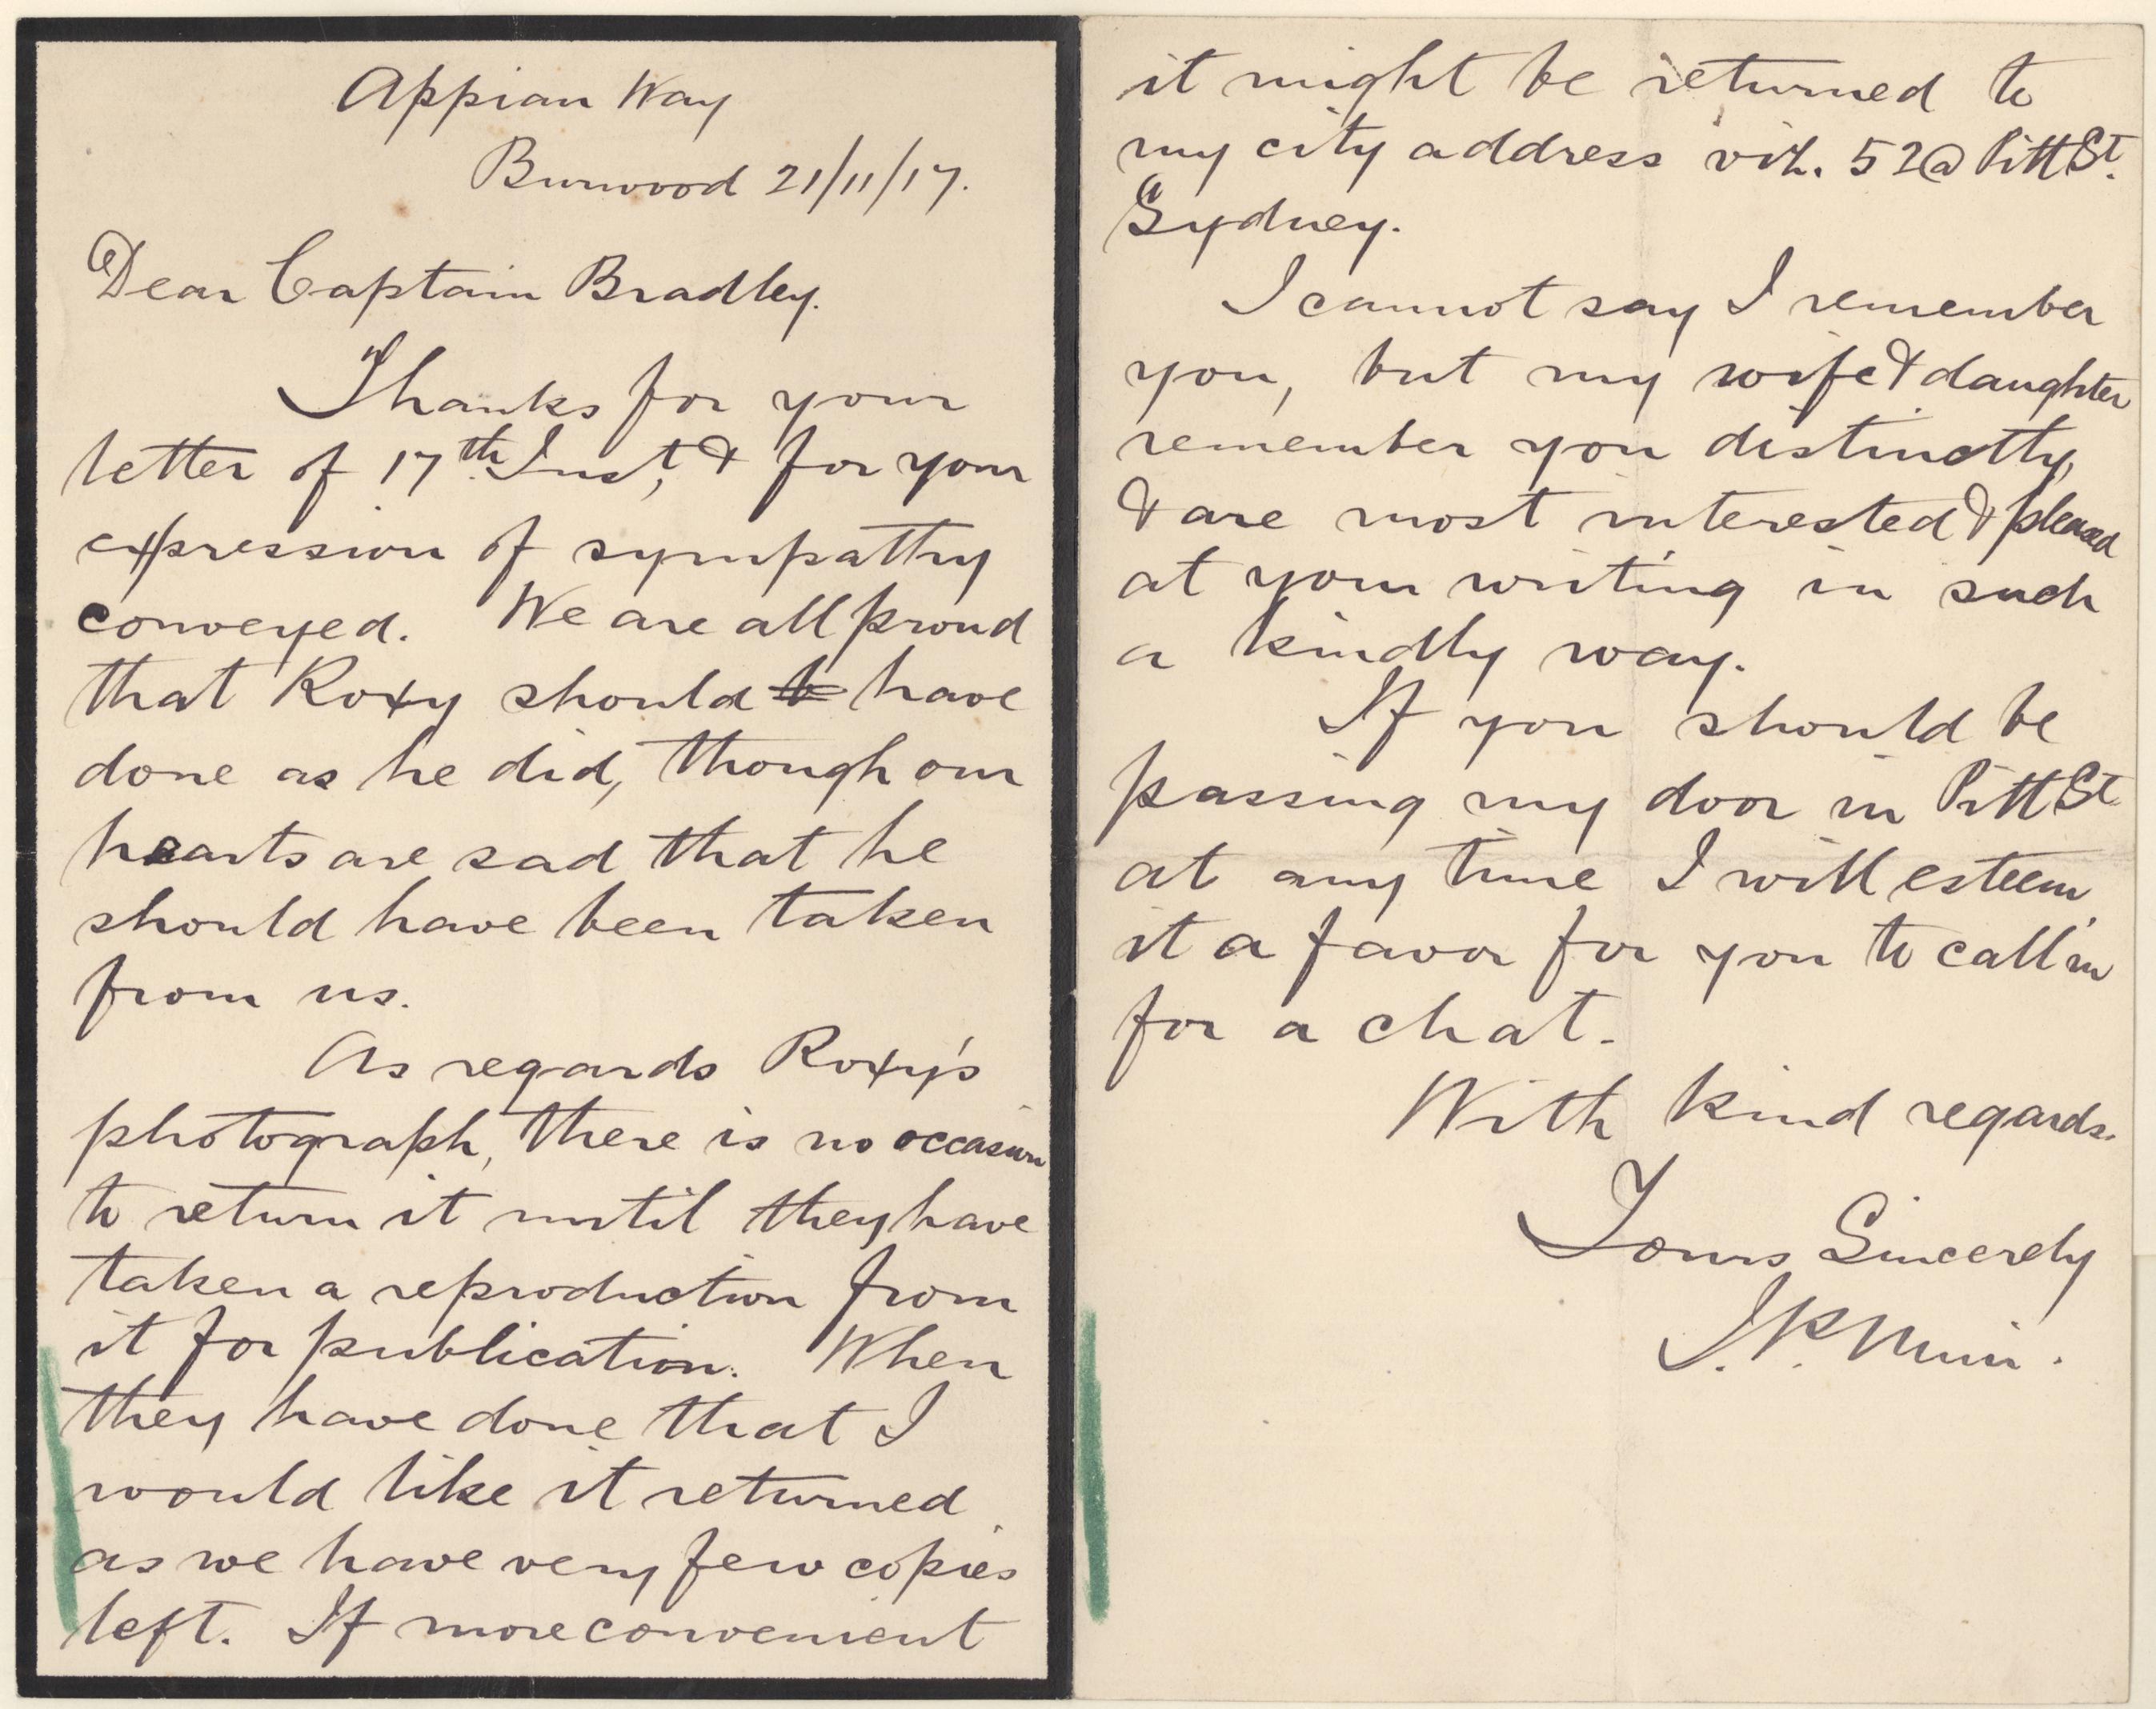 Appian Way
Burwood 21/11/17.
Dear Captain Bradley.
Thanks for your
letter of 17th Inst, & for your
expression of sympathy
conveyed. We are all proud
that Roxy should b have
done as he did, though our
hearts are sad that he
should have been taken
from us.
As regards Roxy's
photograph, there is no occasion
to return it until they have
taken a reproduction from
it for publication. When
they have done that I
would like it returned
as we have very few copies
left. If more convenient
it might be returned to
my city address viz. 52a Pitt St.
Sydney.
I cannot say I remember
you, but my wife & daughter
remember you distinctly,
& are most interested & pleased
at your writing in such
a kindly way.
If you should be
passing my door in Pitt St
at any time I will esteem
it a favor for you to call in
for a chat.
With kind regards.
Yours Sincerely
J. P. Muir.